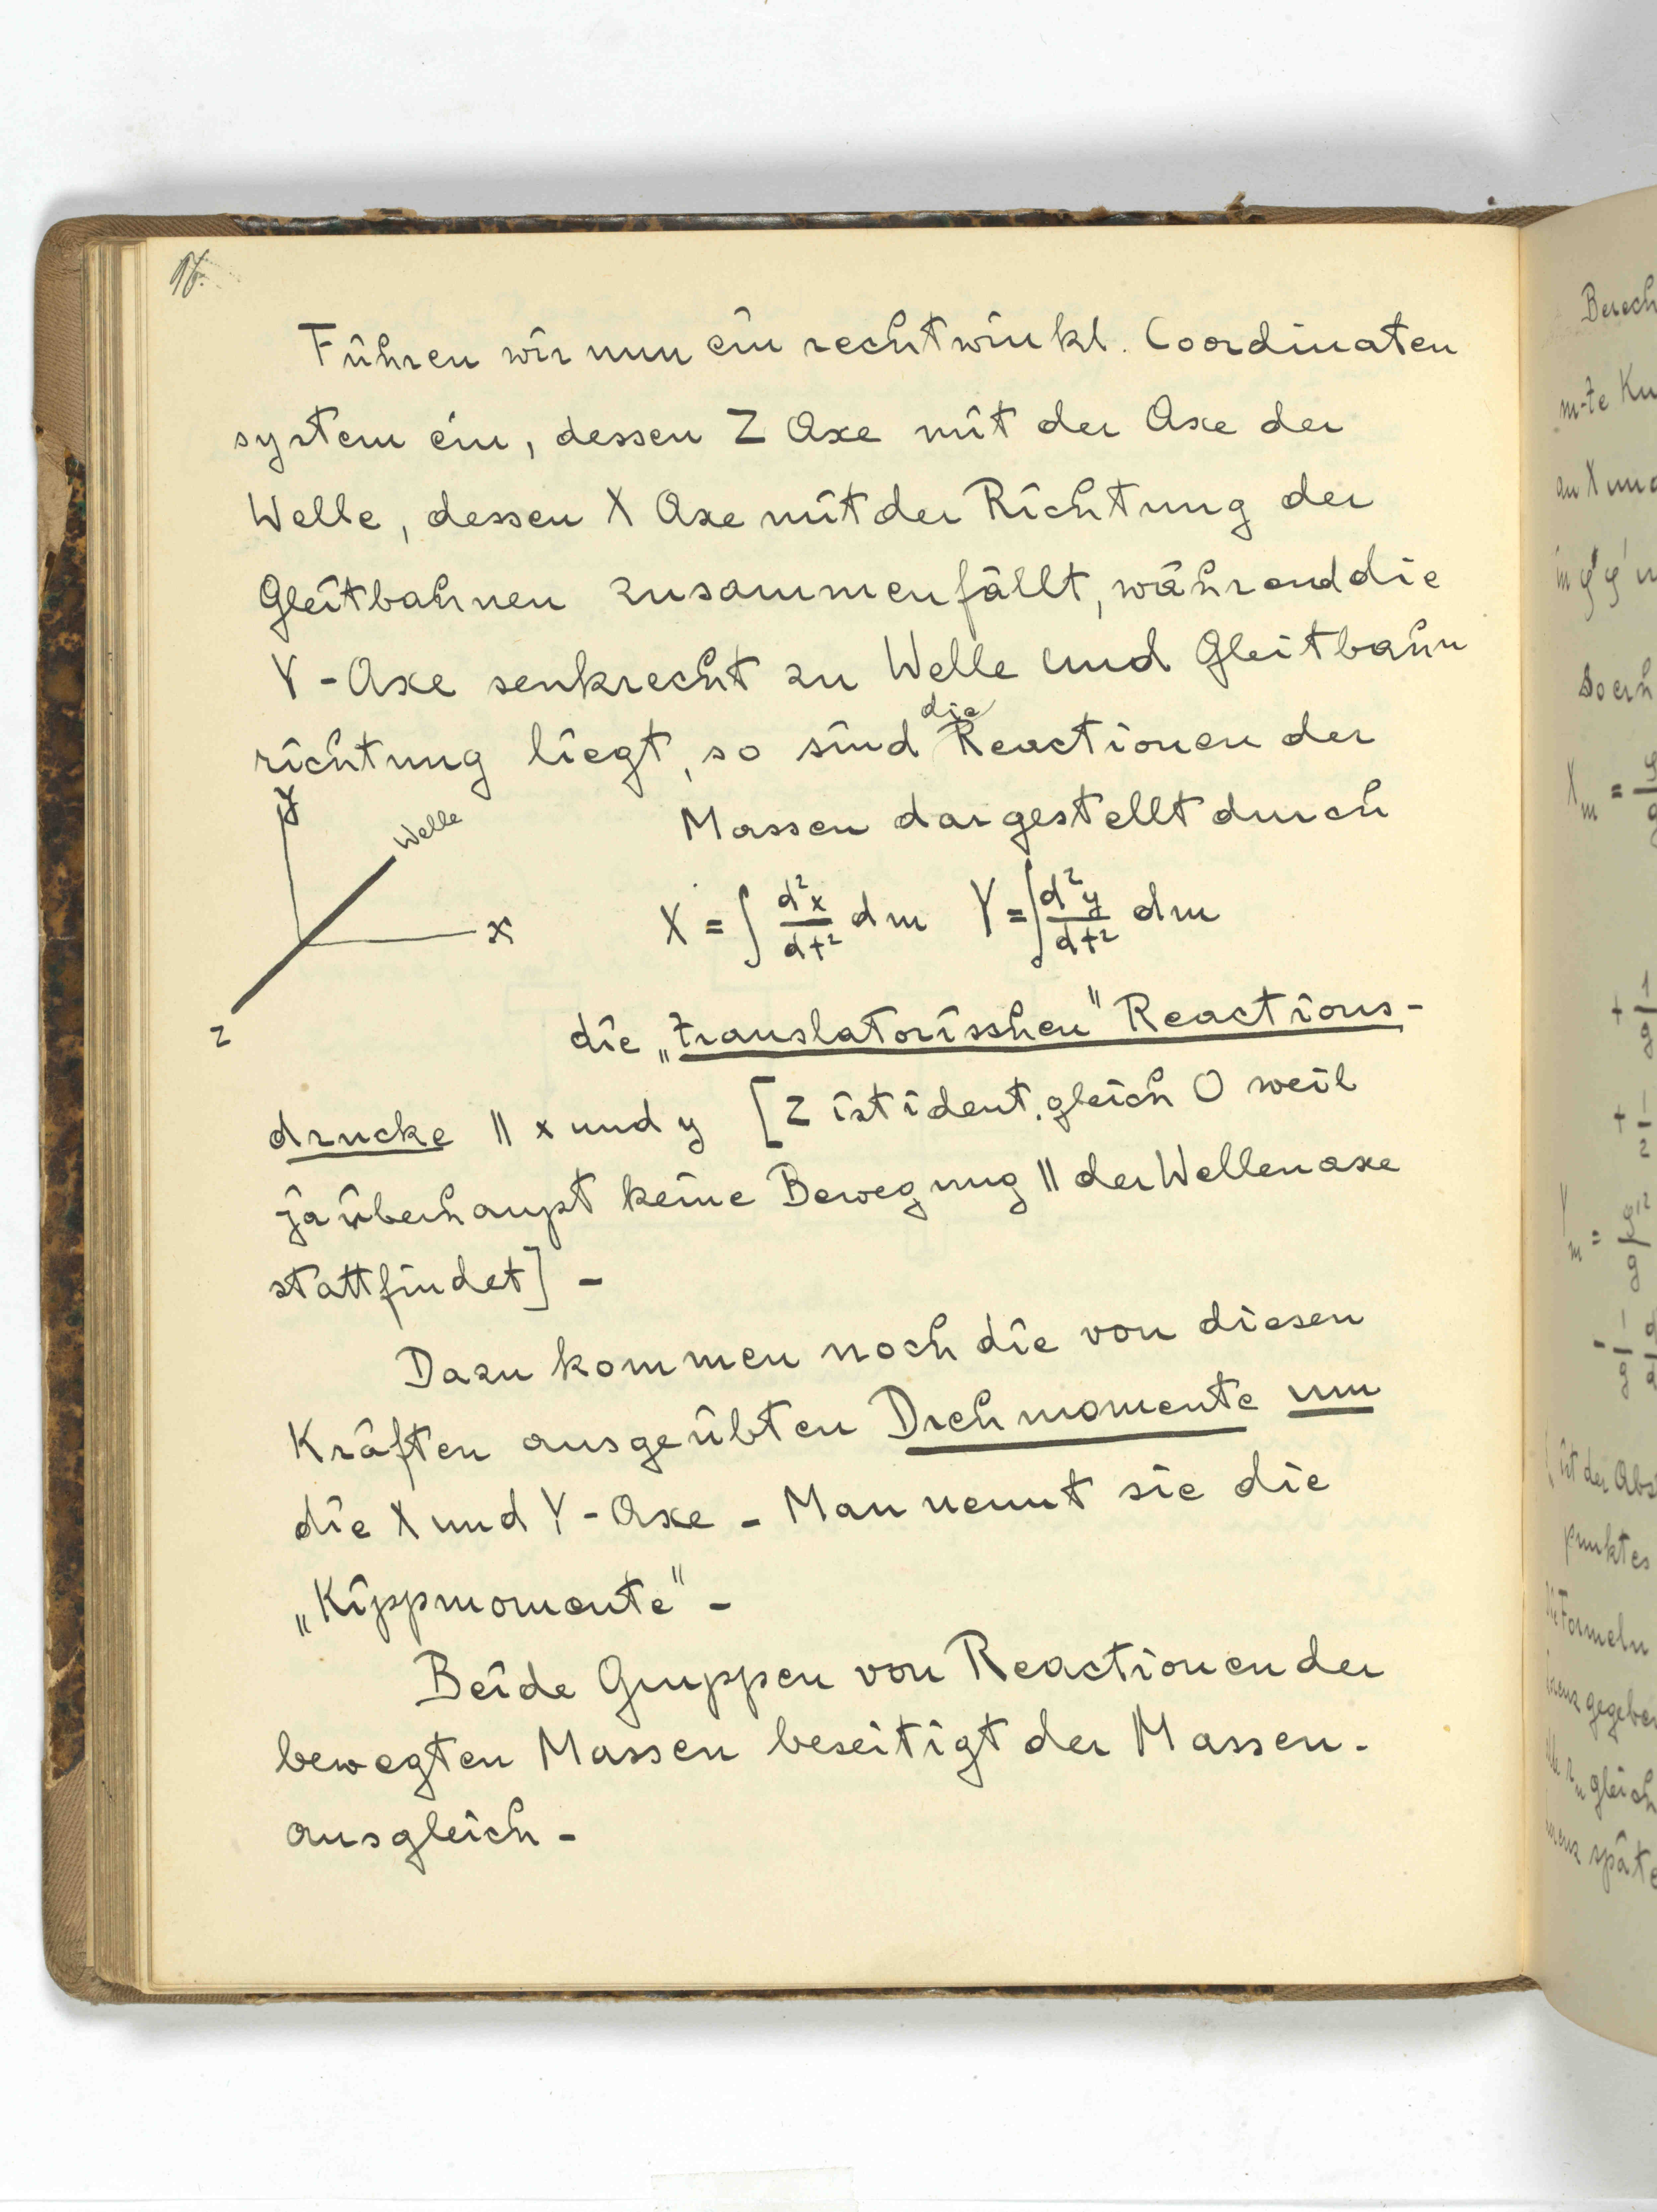 16.
Führen wir nun ein rechtwinkl. Coordinaten
system ein, dessen Z Axe mit der Axe der
Welle, dessen X Axe mit der Richtung der
Gleitbahnen zusammenfällt, während die
Y-Axe senkrecht zu Welle und Gleitbahn
richtung liegt, so sind die Reactionen der
y
Welle
x
z
Massen dargestellt durch
X = ∫ d²x/dt² dm Y = ∫ d²y/dt² dm
die „translatorisschen" Reactions-
drucke || x und y [Z ist ident. gleich 0 weil
ja überhaupt keine Bewegung || der Wellenaxe
stattfindet] -
Dazu kommen noch die von diesen
Kräften ausgeübten Drehmomente um
die X und Y-Axe - Man nennt sie die
„Kippmomente" -
Beide Gruppen von Reactionen der
bewegten Massen beseitigt der Massen-
ausgleich -
Berech
m-te Ku
an X und
so erh
X_m =
+ 1/g
+ 1/2
Y_m =
ist der Abs
punktes
die Formeln
gegeben
gleich
späte